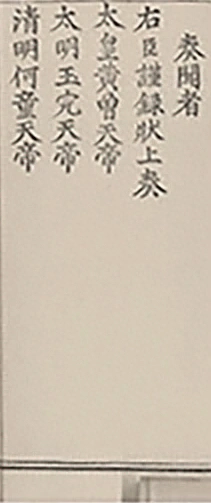 奏聞者
右臣謹録狀上奏
太皇黃曾天帝
太明玉完天帝
清明何童天帝